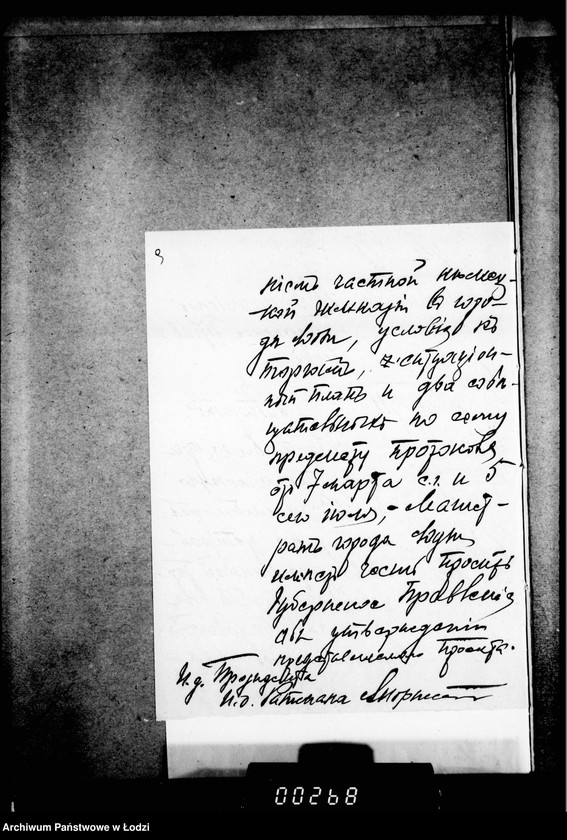 9
ніемъ частной нѣмец-
кой гимназіи въ горо-
дѣ Лодзи, условія къ
торгамъ, ситуаціон-
ный планъ и два
по сему
предмету протокола
отъ 7 марта с.г. и 5
сего іюля, - Магист-
ратъ города Лодзи
имѣетъ честь просить
Губернское Правленіе
объ утвержденіи
представленнаго проекта.
И.д. Президента
И.д. Ратмана
00268
Archiwum Państwowe w Łodzi